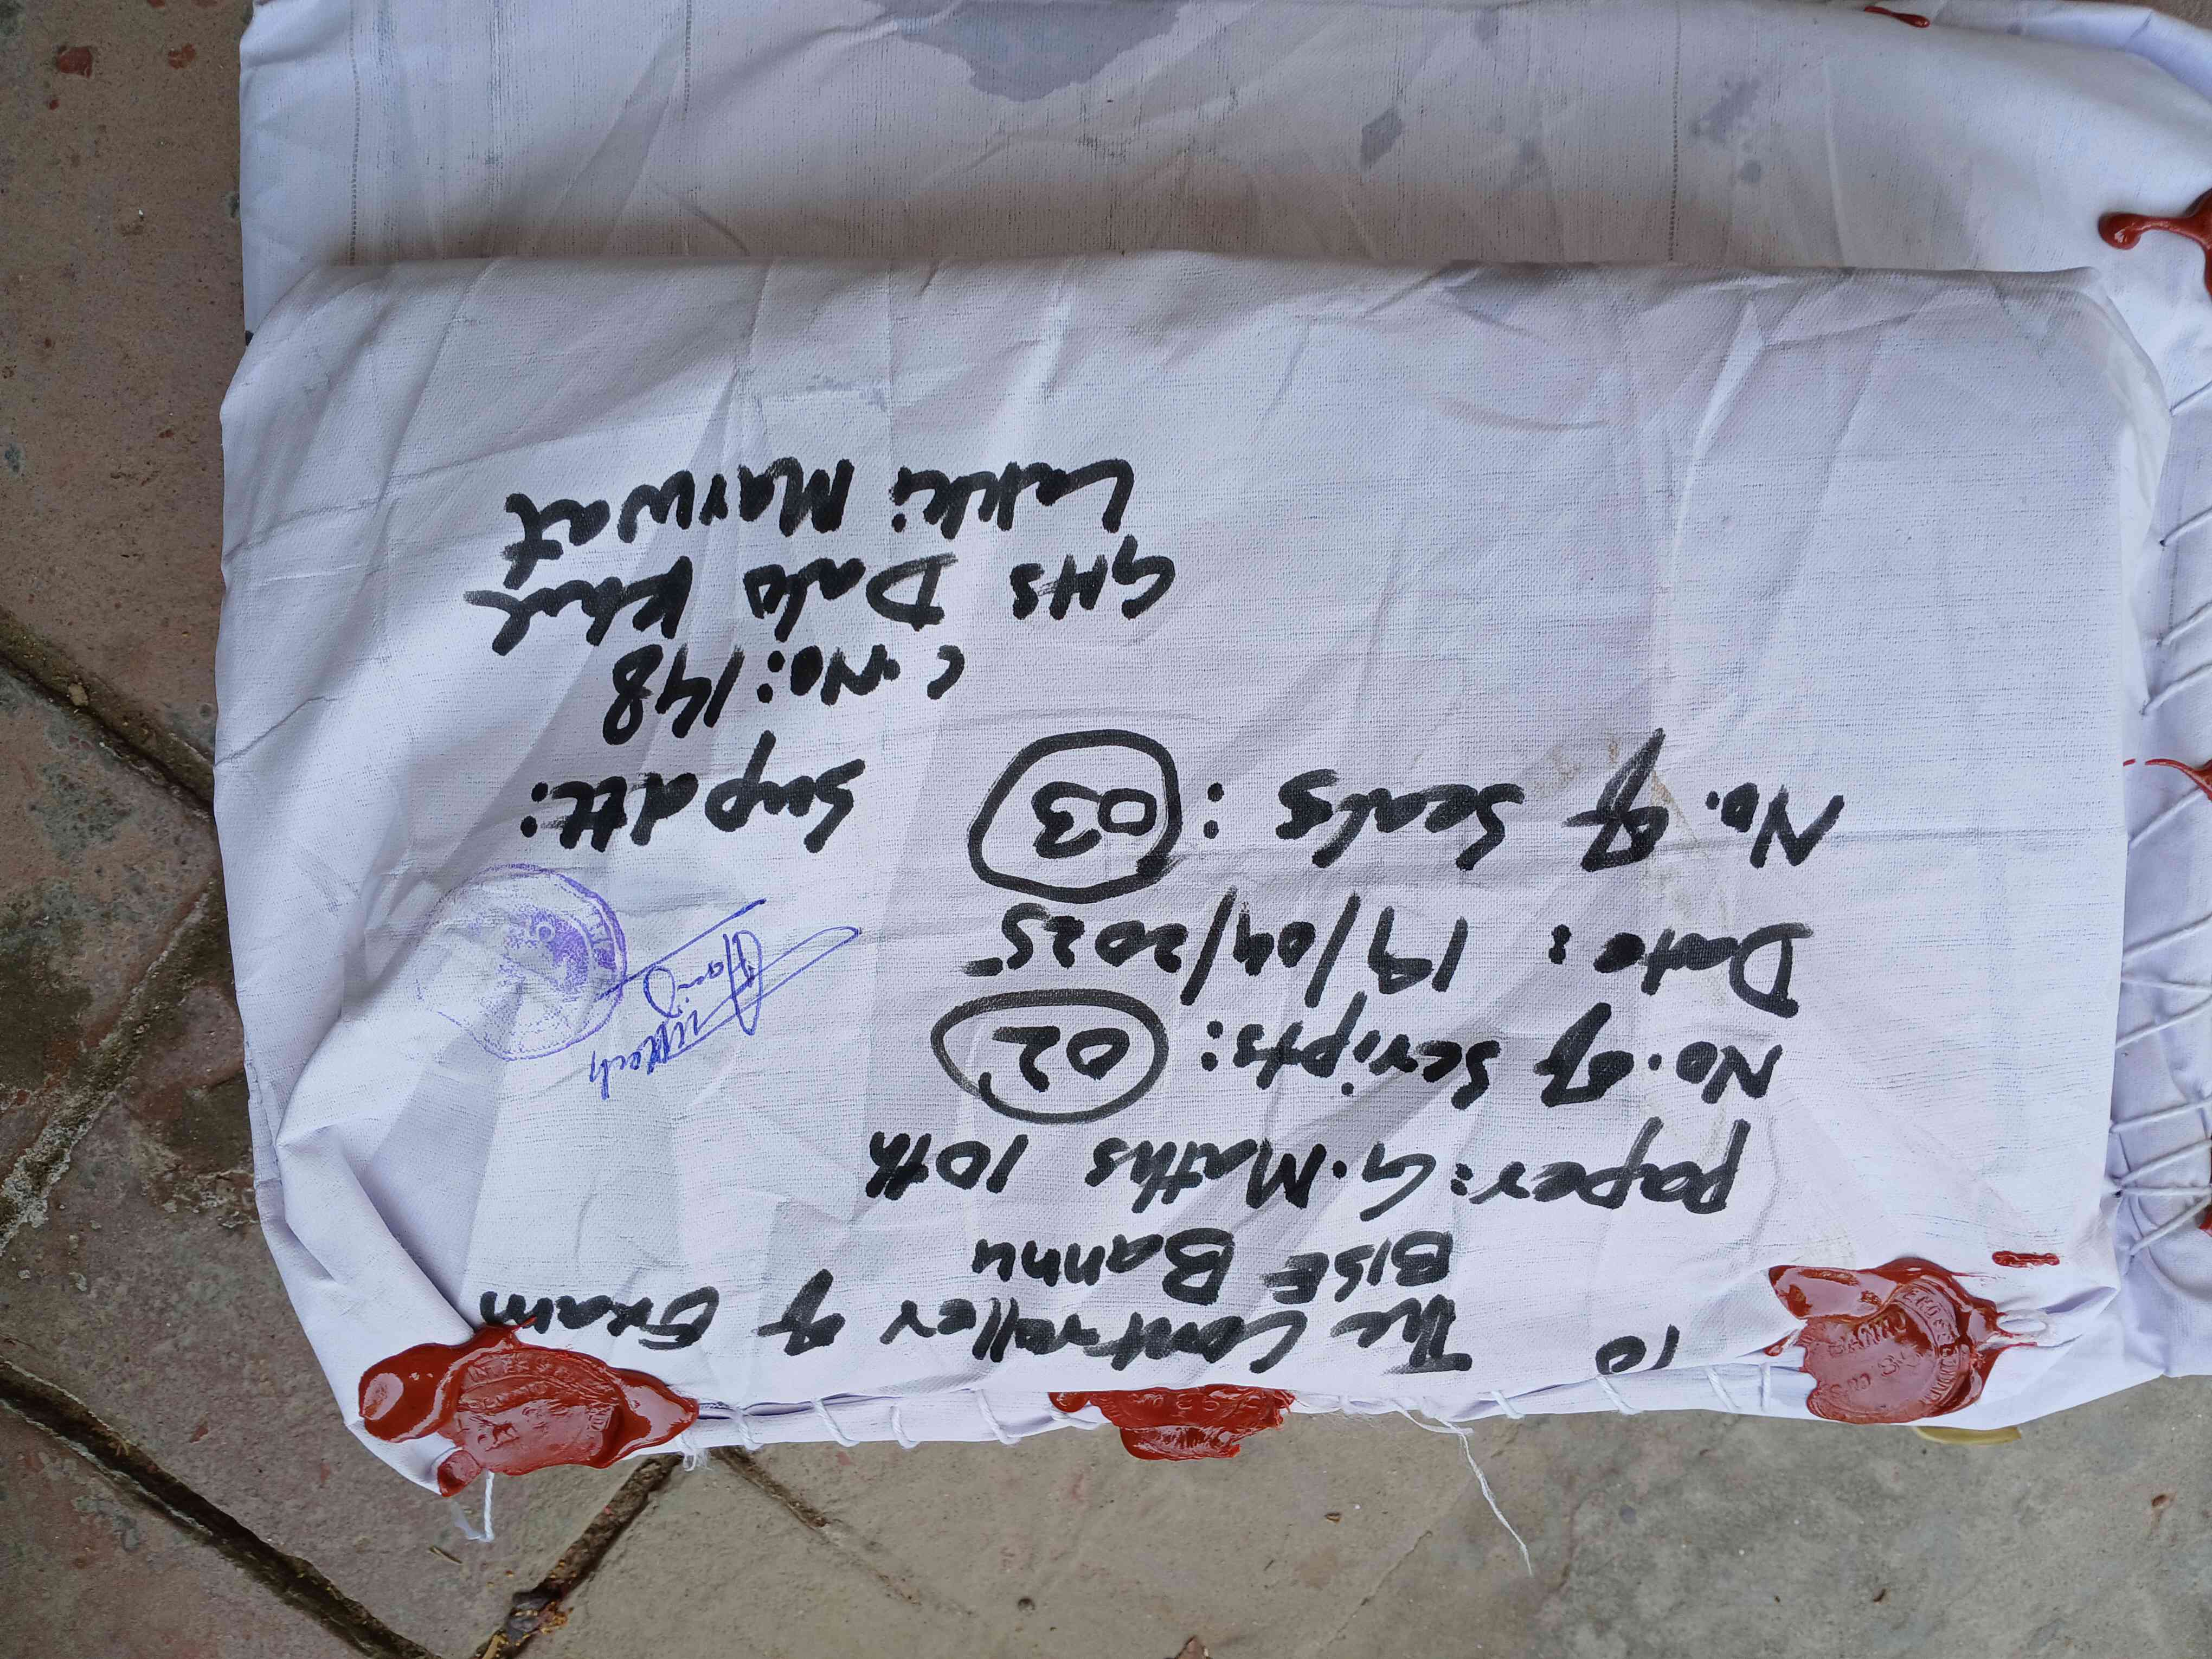 To
The Controller of Exam
BISE Bannu
Paper: G.Maths 10th
No. of Scripts: 02
Date: 19/04/2025
No. of Seals: 03
Supdtt:
C.No: 148
GHS Dalo Khel
Lakki Marwat